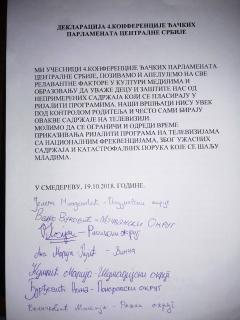 ДЕКЛАРАЦИЈА 4.КОНФЕРЕНЦИЈЕ ЂАЧКИХ
ПАРЛАМЕНАТА ЦЕНТРАЛНЕ СРБИЈЕ
МИ УЧЕСНИЦИ 4.КОНФЕРЕНЦИЈЕ ЂАЧКИХ ПАРЛАМЕНАТА
ЦЕНТРАЛНЕ СРБИЈЕ, ПОЗИВАМО И АПЕЛУЈЕМО НА СВЕ
РЕЛЕВАНТНЕ ФАКТОРЕ У КУЛТУРИ МЕДИЈИМА И
ОБРАЗОВАЊУ ДА УВАЖЕ ДЕЦУ И ЗАШТИТЕ НАС ОД
НЕПРИМЕРЕНИХ САДРЖАЈА КОЈИ СЕ ПЛАСИРАЈУ У
РИЈАЛИТИ ПРОГРАМИМА. НАШИ ВРШЊАЦИ НИСУ УВЕК
ПОД КОНТРОЛОМ РОДИТЕЉА И ЧЕСТО САМИ БИРАЈУ
ОВАКВЕ САДРЖАЈЕ НА ТЕЛЕВИЗИЈИ.
МОЛИМО ДА СЕ ОГРАНИЧИ И ОДРЕДИ ВРЕМЕ
ПРИКАЗИВАЊА РИЈАЛИТИ ПРОГРАМА НА ТЕЛЕВИЗИЈАМА
СА НАЦИОНАЛНИМ ФРЕКВЕНЦИЈАМА, ЗБОГ УЖАСНИХ
САДРЖАЈА И КАТАСТРОФАЛНИХ ПОРУКА КОЈЕ СЕ ШАЉУ
МЛАДИМА.
У СМЕДЕРЕВУ, 19.10.2018. ГОДИНЕ.
округ
ОКРУГ
округ
Ана Марија
Марија
округ
округ